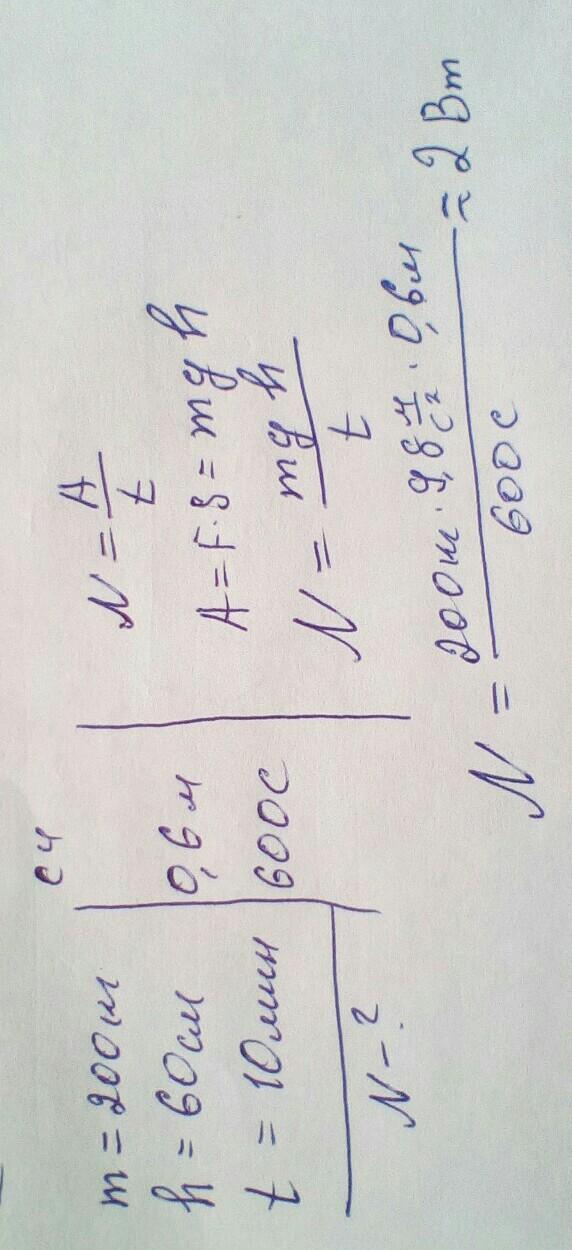 СИ
m = 200 кг
h = 60 см 0,6 м
t = 10 мин 600 с
N - ?
N = A/t
A = F·S = mgh
N = mgh/t
N = 200кг · 9,8 м/с² · 0,6м / 600с ≈ 2 Вт